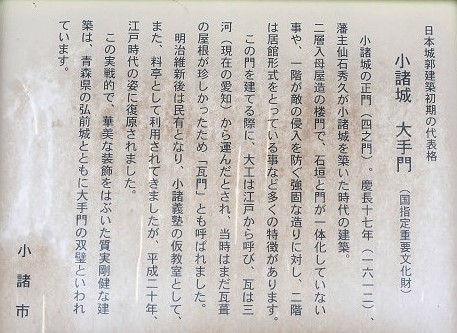 日本城郭建築初期の代表格
小諸城　大手門　（国指定重要文化財）
小諸城の正門（四之門）。慶長十七年（一六一二）、
藩主仙石秀久が小諸城を築いた時代の建築。
二層入母屋造の楼門で、石垣と門が一体化していない
事や、一階が敵の侵入を防ぐ強固な造りに対し、二階
は居館形式をとっている事など多くの特徴があります。
この門を建てる際に、大工は江戸から呼び、瓦は三
河（現在の愛知）から運んだとされ、当時はまだ瓦葺
の屋根が珍しかったため「瓦門」とも呼ばれました。
明治維新後は民有となり、小諸義塾の仮教室として、
また、料亭として利用されてきましたが、平成二十年、
江戸時代の姿に復原されました。
この実戦的で、華美な装飾をはぶいた質実剛健な建
築は、青森県の弘前城とともに大手門の双璧といわれ
ています。
小諸市